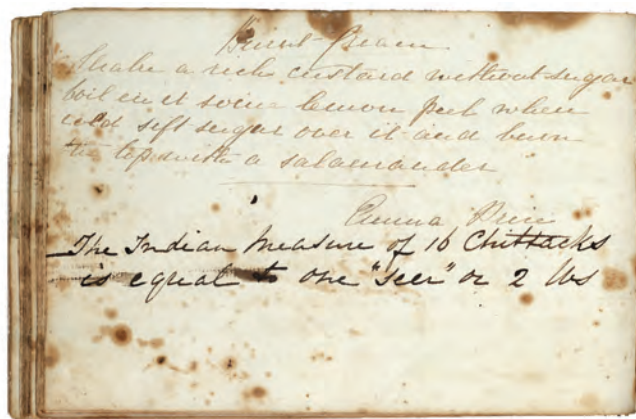 Burnt-Cream
Make a rich custard without sugar
boil in it some lemon peel when
cold sift sugar over it and burn
the top with a salamander
Emma
The Indian Measure of 16 Chittacks
is equal to one "Seer" or 2 lbs